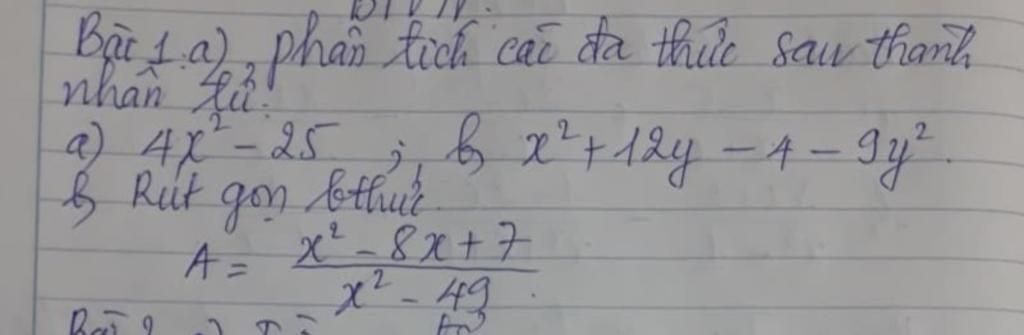 BTVN.
Bài 1.a) phân tích các đa thức sau thành
nhân tử.
a) 4x² - 25 ; b) x² + 12y - 4 - 9y².
b) Rút gọn bthức.
A = \frac{x² - 8x + 7}{x² - 49}.